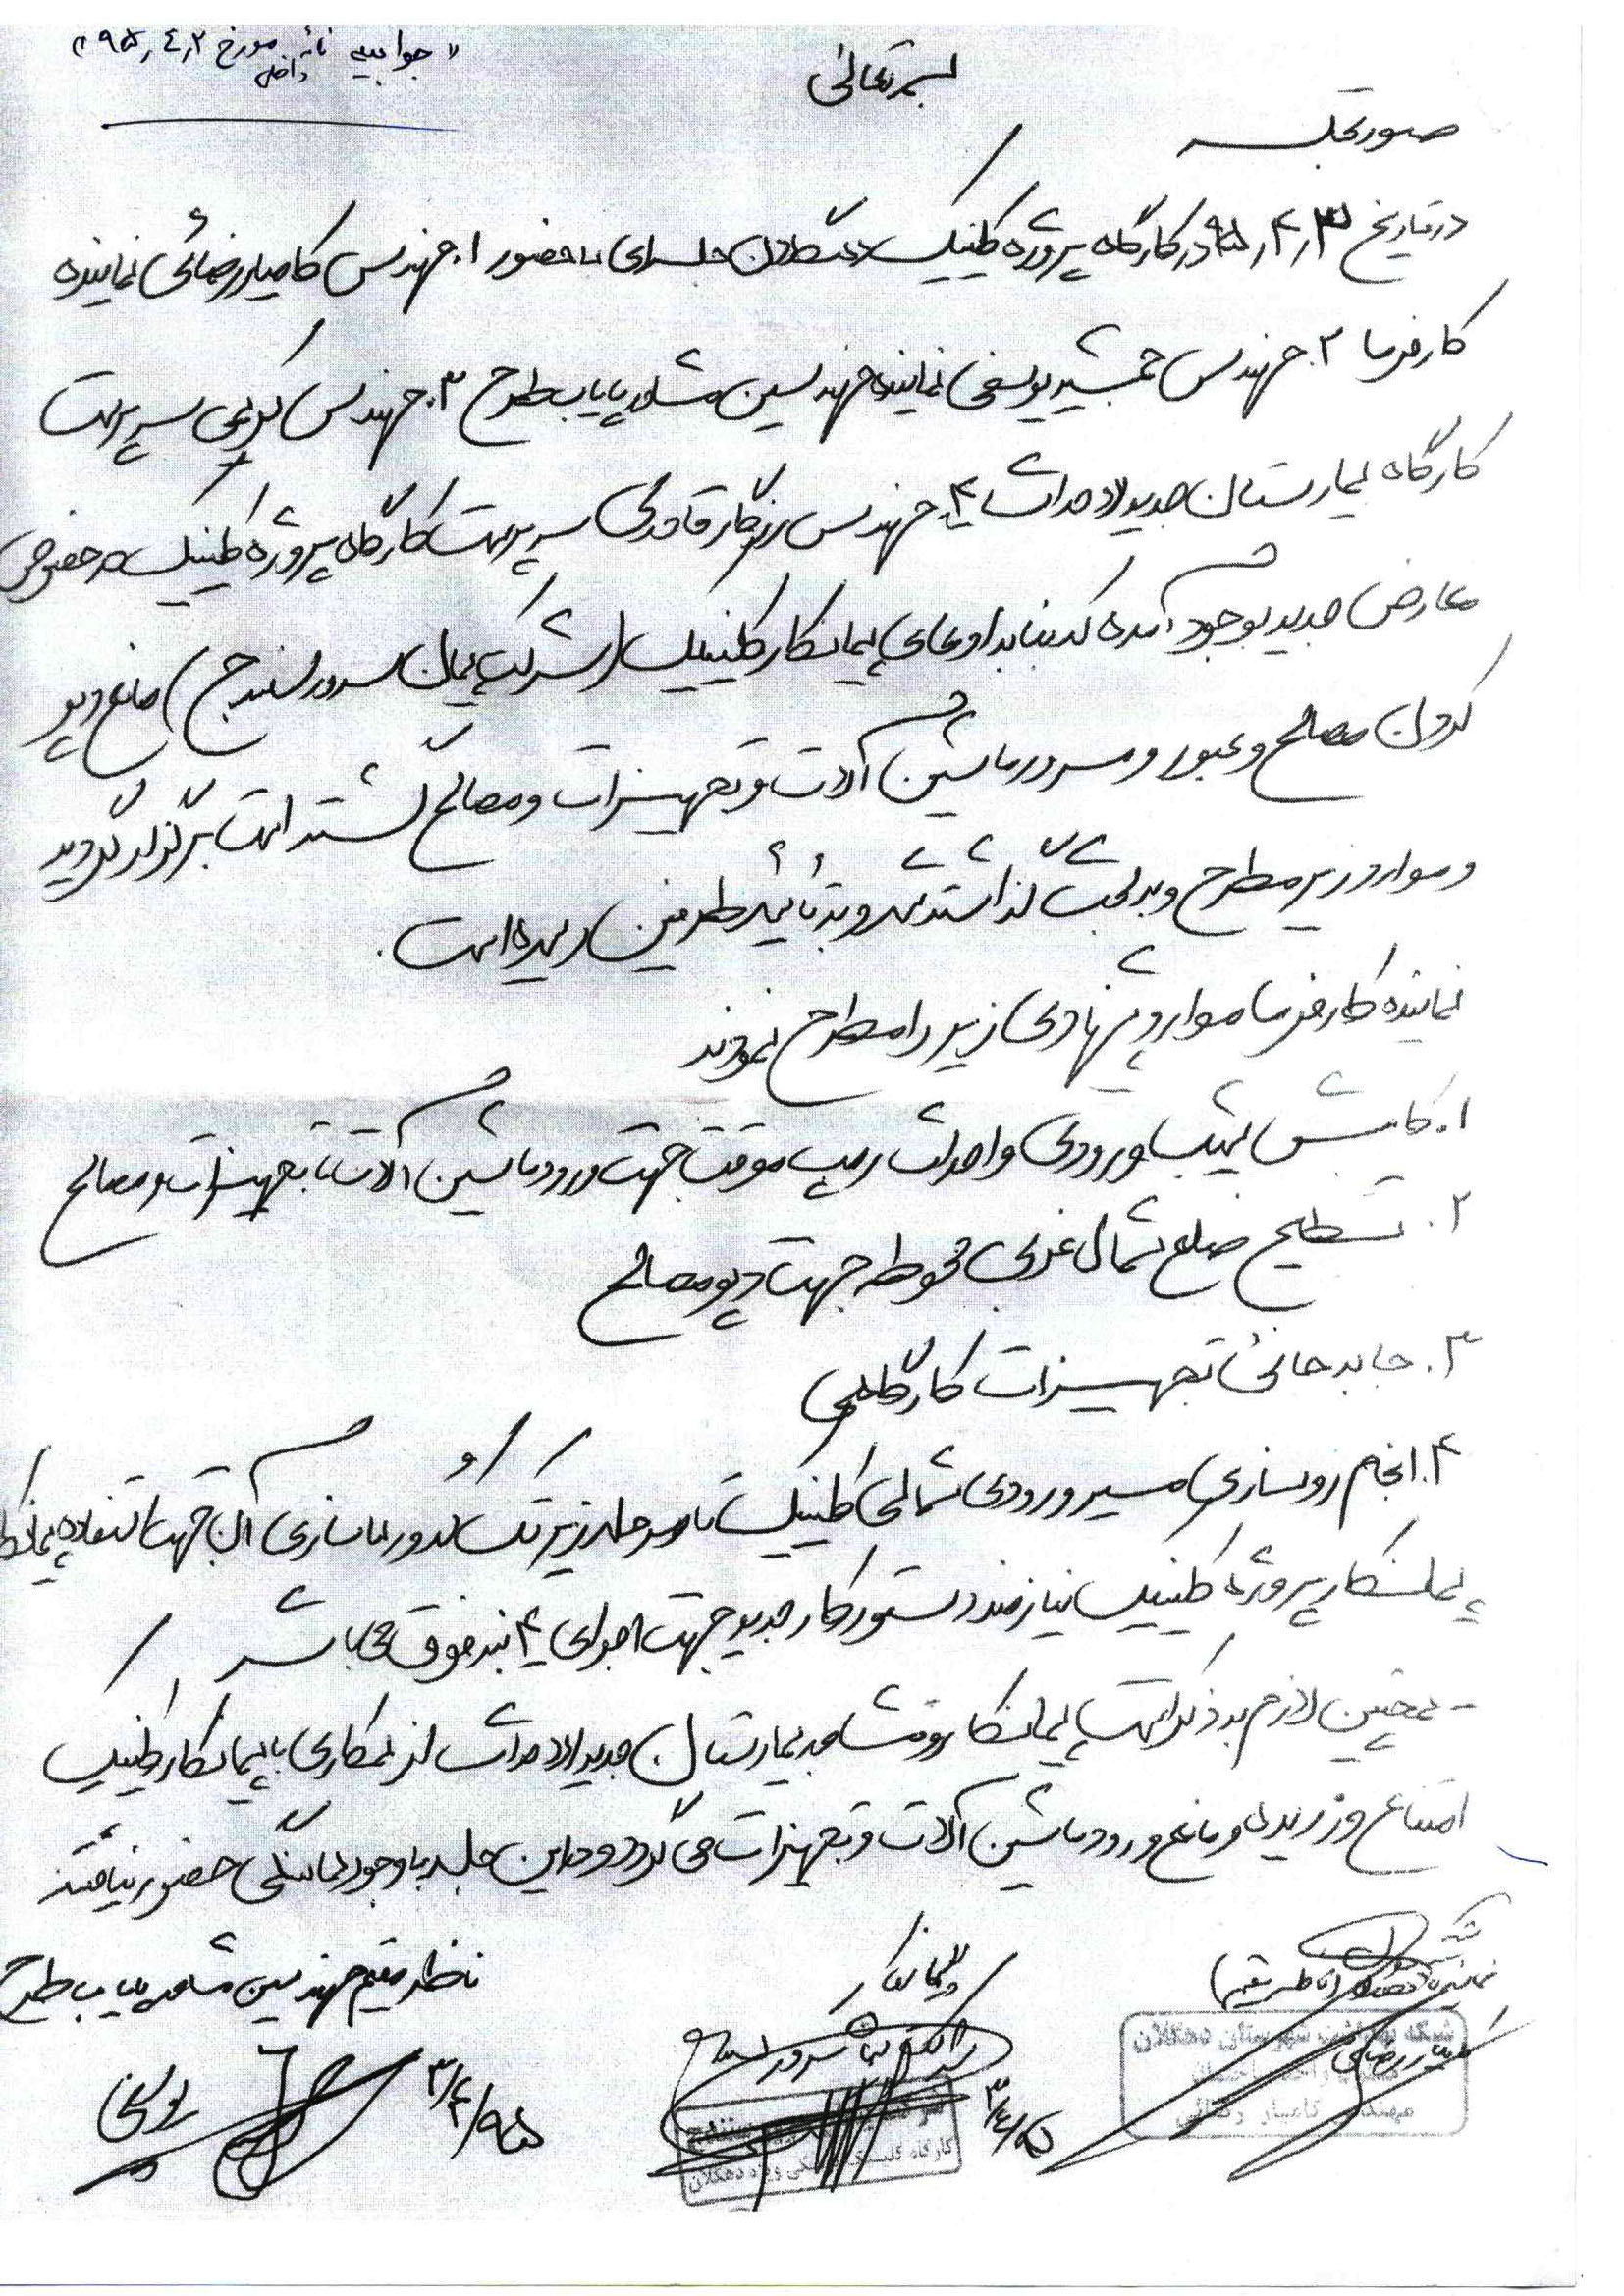 "جوابیه نامه داخلی مورخ ۹۵٫۴٫۲"
بسمه تعالی
صورتجلسه
در تاریخ ۹۵٫۴٫۳ در کارگاه پروژه کلینیک دهگلان جلسه‌ای با حضور ۱. مهندس کامیار رضائی نماینده
کارفرما ۲. مهندس جمشید یوسفی نماینده مهندسین مشاور پایاب طرح ۳. مهندس کریمی سرپرست
کارگاه بیمارستان جدیدالاحداث ۴. مهندس رزگار قادری سرپرست کارگاه پروژه کلینیک در خصوص
معارض جدید بوجود آمده که بنا به ادعای پیمانکار کلینیک (شرکت پیمان سرور سنندج) مانع دپو
کردن مصالح و عبور و مرور ماشین آلات و تجهیزات و مصالح گشته است برگزار گردید
و موارد زیر مطرح و به بحث گذاشته شد و به تائید طرفین رسیده است.
نماینده کارفرما موارد پیشنهادی زیر را مطرح نمودند
۱. کاهش شیب ورودی و احداث رمپ موقت جهت ورود ماشین آلات تا تجهیزات و مصالح
۲. تسطیح ضلع شمال غربی محوطه جهت دپو مصالح
۳. جابه جائی تجهیزات کارگاهی
۴. انجام روسازی مسیر ورودی شمالی کلینیک تا مرحله زیر تک کدور نماسازی آن جهت استفاده پیمانکار
پیمانکار پروژه کلینیک نیازمند دستور کار جدید جهت اجرای ۴ بند فوق می باشد
- همچنین لازم به ذکر است پیمانکار و مشاور بیمارستان جدیدالاحداث از همکاری با پیمانکار کلینیک
امتناع ورزیده و مانع ورود ماشین آلات و تجهیزات می گردد و در این جلسه با وجود هماهنگی حضور نیافتند
ناظر مقیم مهندسین مشاور پایاب طرح
پیمانکار
نماینده کارفرما
شبکه بهداشت شهرستان دهگلان
مهندس کامیار رضائی
کارگاه کلینیک ویژه دهگلان
یوسفی
۹۵/۴/۳
۹۵/۴/۳